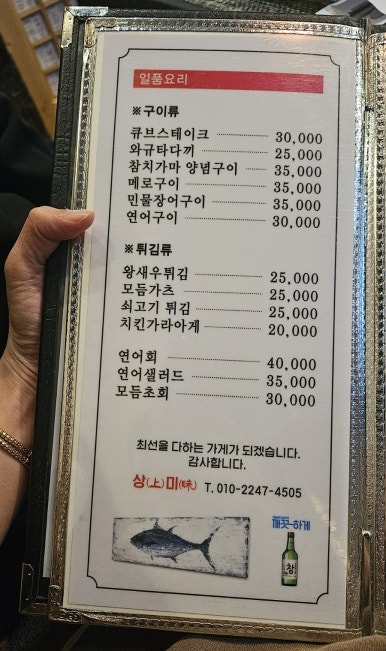 일품요리
※ 구이류
큐브스테이크 30,000
와규타다끼 25,000
참치가마 양념구이 35,000
메로구이 35,000
민물장어구이 35,000
연어구이 30,000
※ 튀김류
왕새우튀김 25,000
모듬가츠 25,000
쇠고기 튀김 25,000
치킨가라아게 20,000
연어회 40,000
연어샐러드 35,000
모듬초회 30,000
최선을 다하는 가게가 되겠습니다.
감사합니다.
상(上)미(味) T. 010-2247-4505
깨끗-하게
참